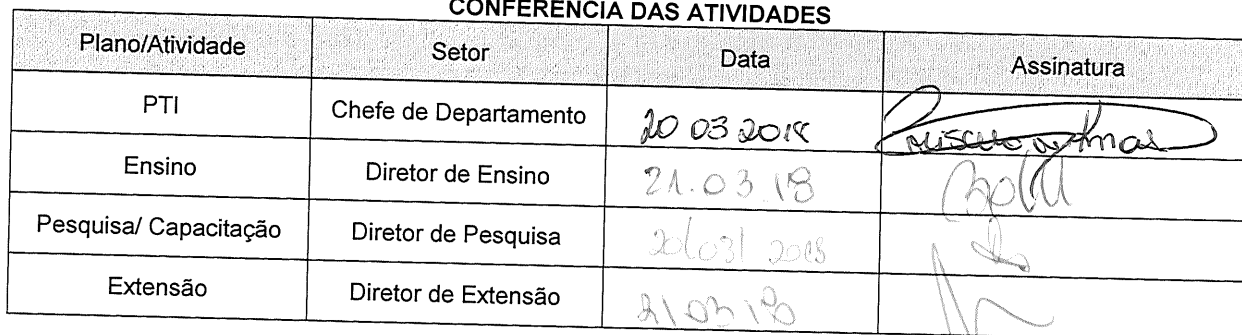 CONFERÊNCIA DAS ATIVIDADES
Plano/Atividade Setor Data Assinatura
PTI Chefe de Departamento 20 03 2018
Ensino Diretor de Ensino 21.03.18
Pesquisa/ Capacitação Diretor de Pesquisa 20/03/2018
Extensão Diretor de Extensão 21 03 18